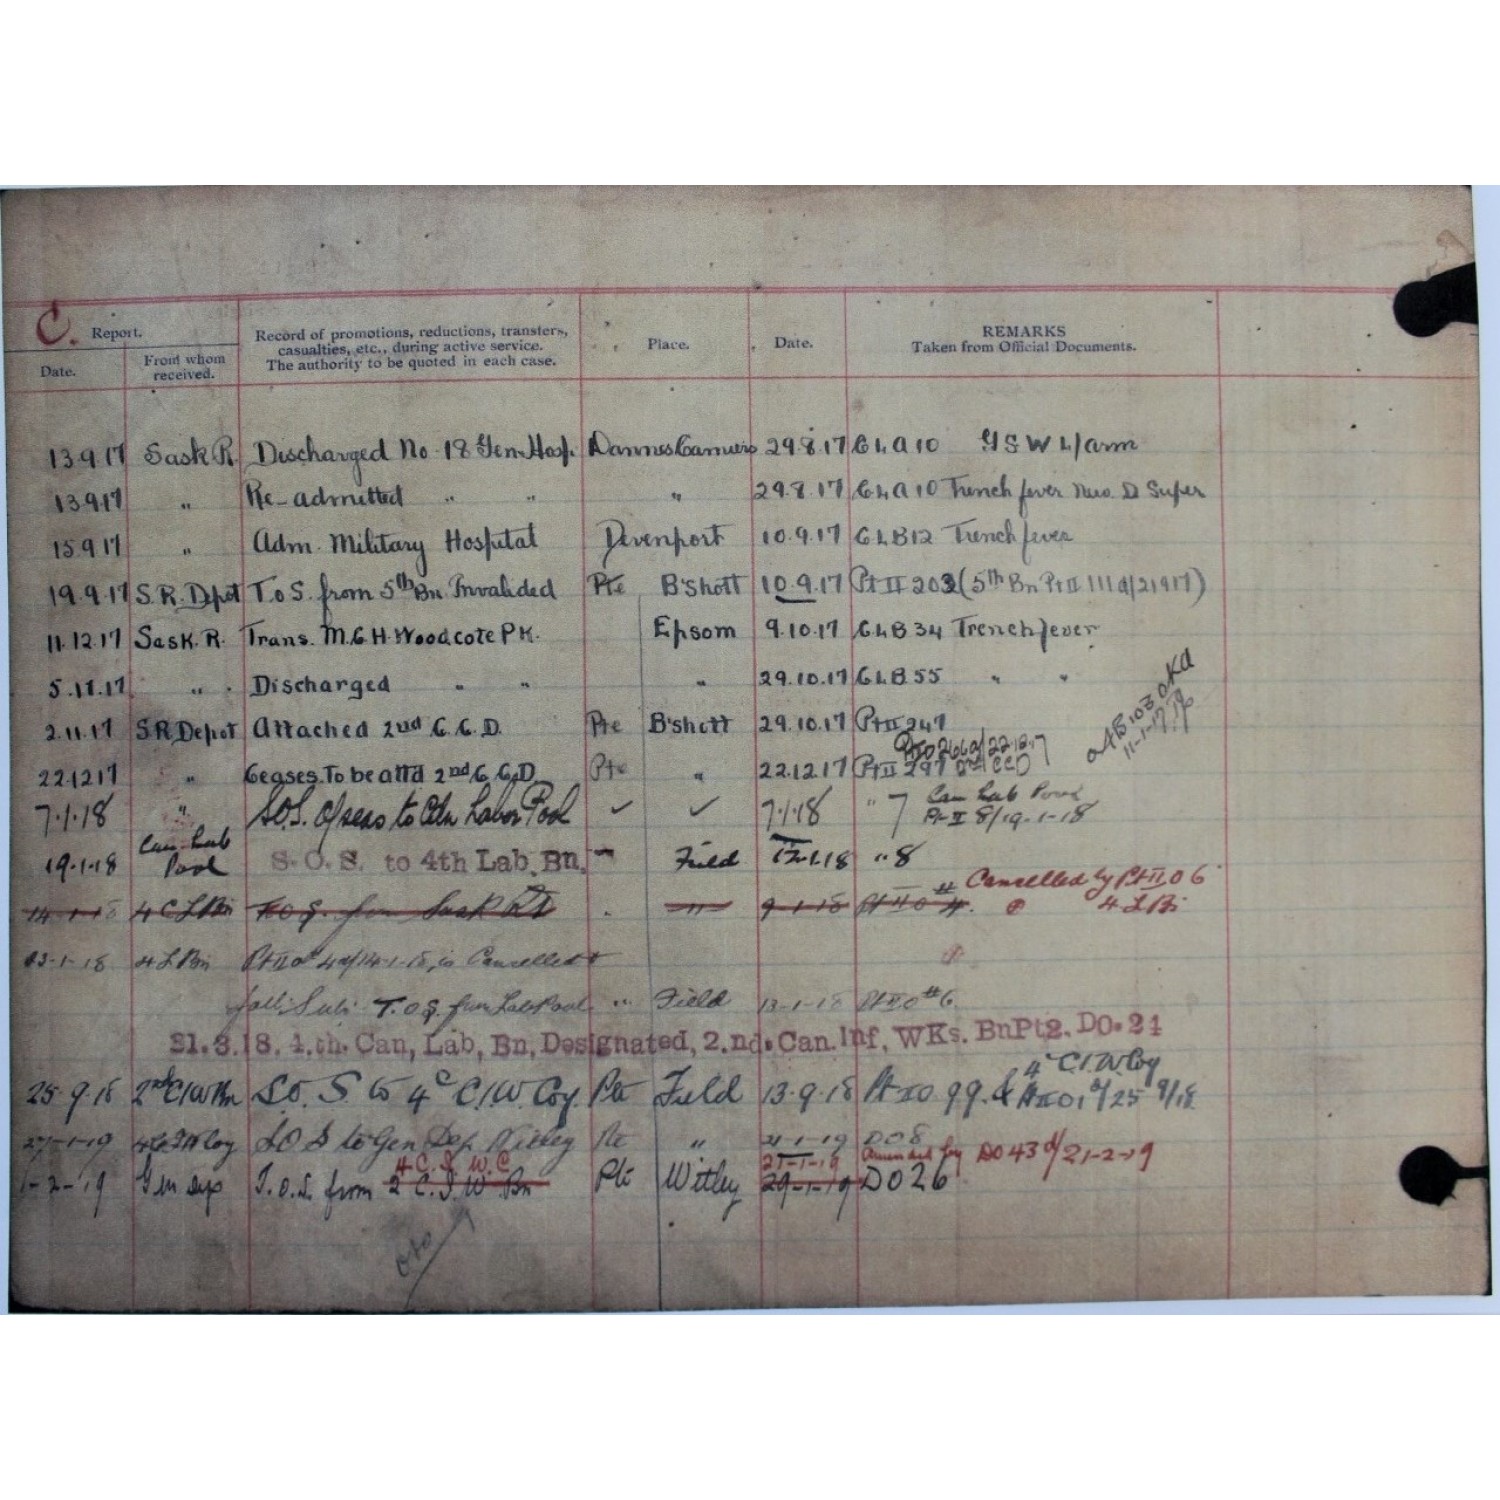 C.
Report.
Date.
From whom received.
Record of promotions, reductions, transfers, casualties, etc., during active service. The authority to be quoted in each case.
Place.
Date.
REMARKS Taken from Official Documents.
13.9.17 Sask R. Discharged No. 18 Gen. Hosp. Dannes Camiers 29.8.17 C L A 10 G S W L/arm
13.9.17 " Re-admitted " " " 29.8.17 C L A 10 Trench fever D Super
15.9.17 " Adm. Military Hospital Devenport 10.9.17 C L B 12 Trench fever
19.9.17 S.R. Depot T.o S. from 5th Bn Invalided Pte B'shott 10.9.17 Pt II 203 (5th Bn Pt II 111 d/21917)
11.12.17 Sask. R. Trans. M.C.H. Woodcote PK. Epsom 9.10.17 C L B 34 Trench fever
5.11.17 " Discharged " " " 29.10.17 C L B 55 " "
2.11.17 S.R. Depot Attached 2nd C.C.D. Pte B'shott 29.10.17 Pt II 247
22.12.17 " Ceases. To be attd 2nd C.C.D Pte " 22.12.17 Pt II 297 2nd CCD
7.1.18 " S.O.S. O/seas to Cdn Labor Pool ✓ ✓ 7.1.18 " 7 Can Lab Pool
Pt II 8/19-1-18
19.1.18 Can. Lab Pool S.O.S. to 4th Lab. Bn. Field 12.1.18 " 8
Cancelled by Pt II.O 6
4 L Bn
14-1-18 4 C L Bn T.O.S. from Sask R D " 9-1-18 Pt II O 4.
13-1-18 4 L Bn Pt II O 4 d/14-1-18, is Cancelled +
T.O.S. from Lab Pool " Field 13-1-18 Pt II O #6
31.3.18. 4.th. Can, Lab, Bn, Designated, 2.nd. Can. Inf, WKs. Bn Pt2. DO. 21
4th C.I.W. Coy
25.9.18 2nd C I W Bn S.O.S. to 4th C.I.W. Coy. Pte Field 13.9.18 Pt II O 99. & Pt II O 1 d/25 9/18
27-1-19 4 C I W Coy S O S to Gen Dep Witley Pte " 21-1-19 D O 8
4 C. I. W. C 27-1-19 Amended by DO 43 d/21-2-19
1-2-19 Gen Dep T.O.S. from 2 C. I. W. Bn Pte Witley 29-1-19 DO 26